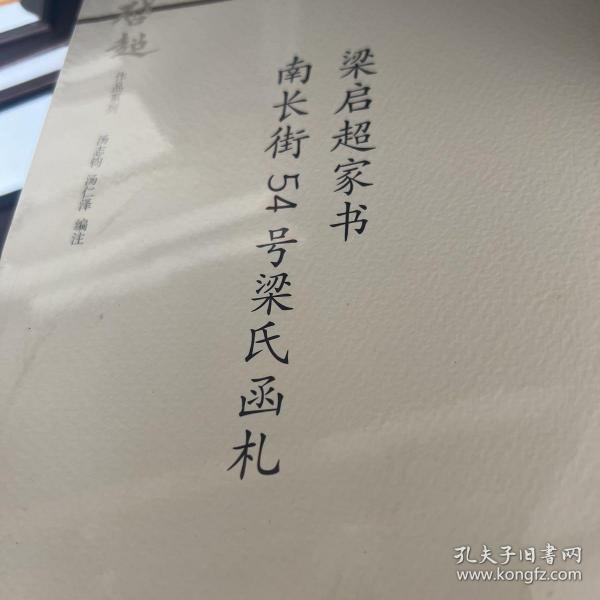 梁启超家书
南长街54号梁氏函札
启超
作品系列
汤志钧 汤仁泽 编注
孔夫子旧书网
www.kongfz.com